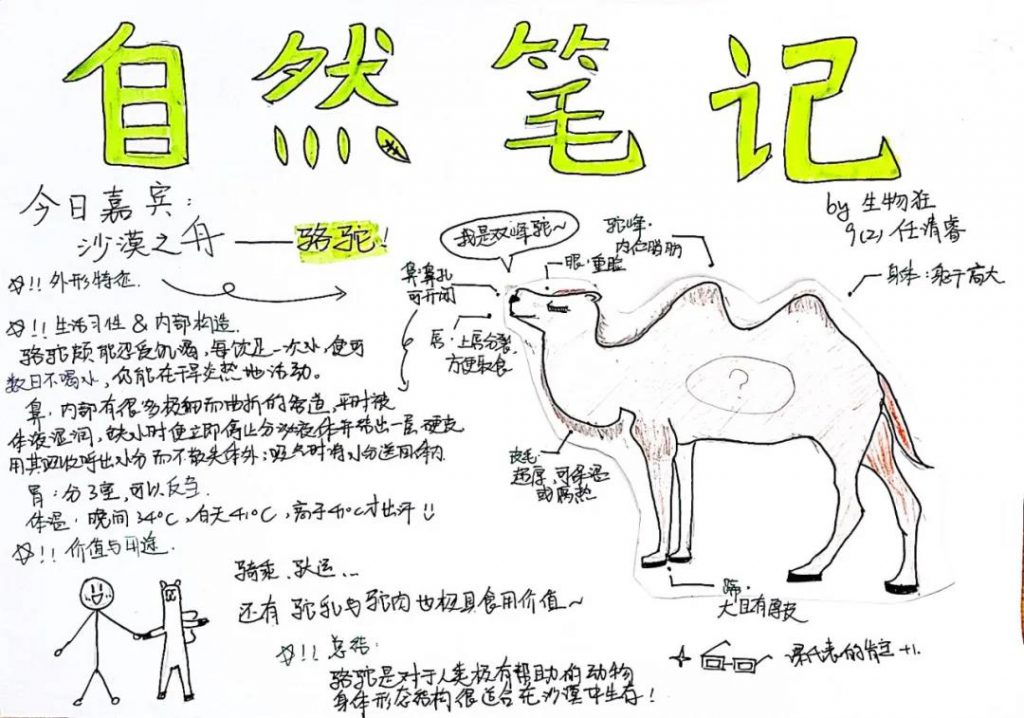 自然笔记
今日嘉宾:
沙漠之舟——骆驼!
by 生物狂
9(2) 任清睿
!! 外形特征.
我是双峰驼~
驼峰·
内仁脂肪
眼·重睑
鼻:鼻孔
可开闭
身体:
高大
唇·上唇分裂,
方便取食
!! 生活习性 & 内部构造.
骆驼颇能忍受饥渴,每饮足一次水,便可
数日不喝水,仍能在干旱炎热地活动。
鼻·内部有很多极细而曲折的管道,平时被
体液湿润,缺水时便立即停止分泌液体并结出一层硬皮
用其吸收呼出水分而不散失体外;吸气时将水分送回体内
胃:分3室,可以反刍.
体温·晚间34℃,白天41℃,高于41℃才出汗
?
皮毛:
超厚,可保温
或隔热
蹄:
大且有厚皮
!! 价值与用途.
骑乘、驮运…
还有驼乳与驼肉也极具食用价值~
!! 总结:
骆驼是对于人类极有帮助的动物
身体形态结构很适合在沙漠中生存!
课代表的肯定+1.